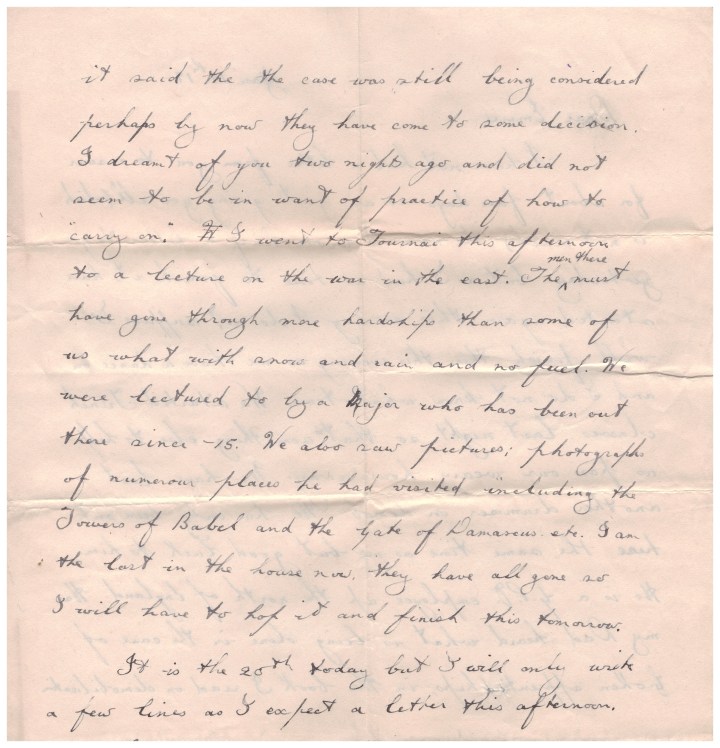 it said the the case was still being considered
perhaps by now they have come to some decision.
I dreamt of you two nights ago and did not
seem to be in want of practice of how to
"carry on." I went to Tournai this afternoon
to a lecture on the war in the east. The men there must
have gone through more hardships than some of
us what with snow and rain and no fuel. We
were lectured to by a Major who has been out
there since -15. We also saw pictures; photographs
of numerous places he had visited including the
Towers of Babel and the Gate of Damascus etc. I am
the last in the house now, they have all gone so
I will have to hop it and finish this tomorrow.
It is the 20th today but I will only write
a few lines as I expect a letter this afternoon.